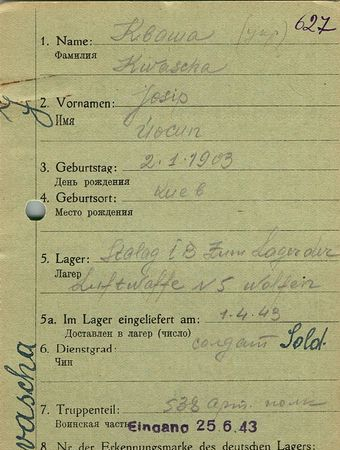 627
1. Name: Кваша (укр)
Фамилия
Kwascha
2. Vornamen: Josip
Имя
Йосип
3. Geburtstag: 2.1.1903
День рождения
4. Geburtsort: Киев
Место рождения
5. Lager: Stalag I B Zum Lager der
Лагер
Luftwaffe N 5 Wolfen
5a. Im Lager eingeliefert am: 1.4.43
Доставлен в лагер (число)
6. Dienstgrad: солдат Sold.
Чин
7. Truppenteil: 538 арт. полк
Воинская часть
Eingang 25.6.43
8. Nr. der Erkennungsmarke des deutschen Lagers:
wascha